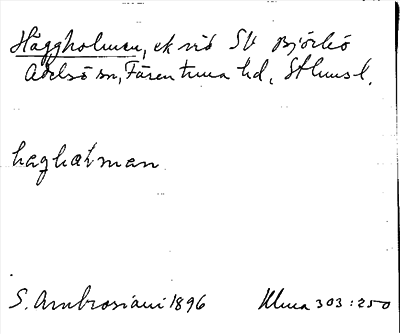 Häggholmen, ek vid SV Björkö
Adelsö sn, Färentuna hd, Sthms l.
haghαt man
S. Ambrosiani 1896 Ulma 303:250